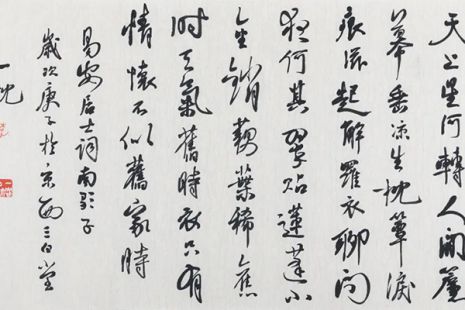 天上星河轉人間簾
幕垂涼生枕簟淚
痕滋起解羅衣聊問
夜何其翠貼蓮蓬小
金銷藕葉稀舊
时天氣舊時衣只有
情懷不似舊家時
易安居士詞南歌子
歲次庚子於京西三白堂